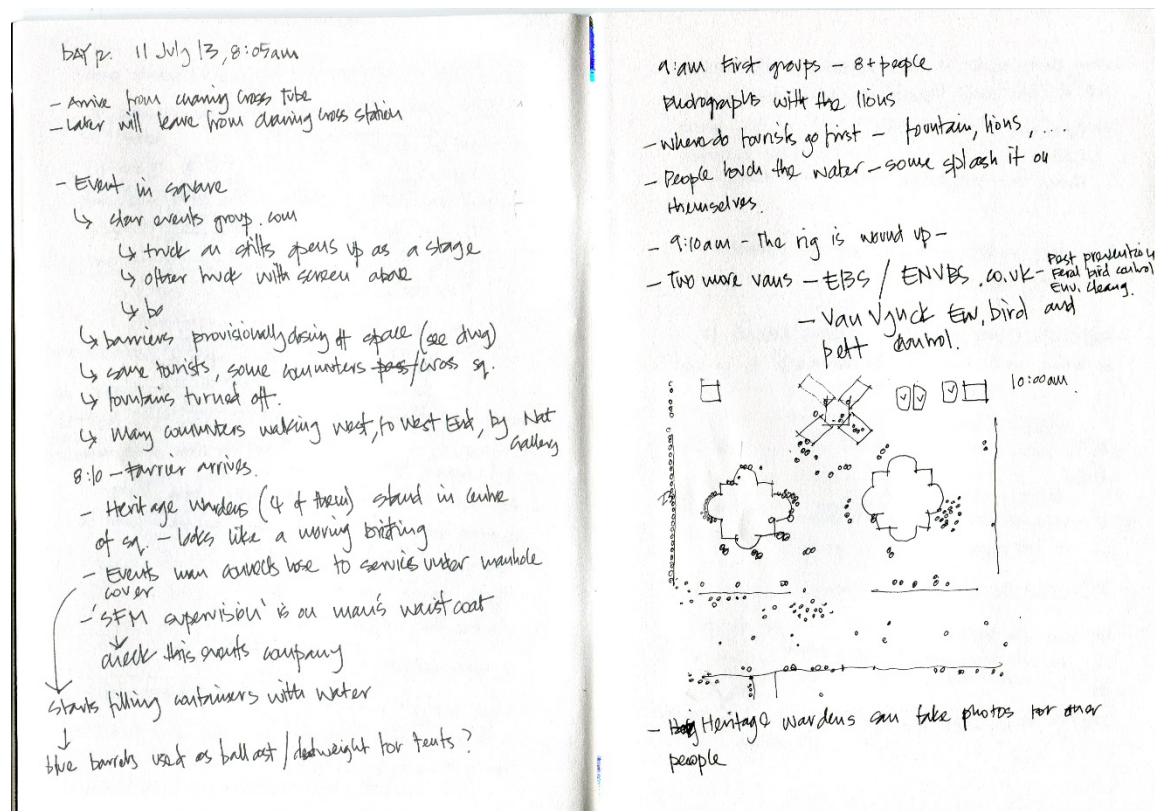 DAY 2. 11 July 13, 8:05am
- Arrive from charing cross tube
- Later will leave from charing cross station
- Event in square
↳ star events group.com
↳ truck on stilts opens up as a stage
↳ other truck with screen above
↳ bo
↳ barriers provisionally closing off space (see dwg)
↳ some tourists, some commuters pass/cross sq.
↳ fountains turned off.
↳ Many commuters walking west, to West End, by Nat
Gallery
8:10 - arrives.
- Heritage Wardens (4 of them) stand in centre
of sq. - looks like a morning briefing
- Events man connects hose to service under manhole
cover
- 'SFM supervision' is on man's waistcoat
check this events company
starts filling containers with water
blue barrels used as ballast/deadweight for tents?
9:am first groups - 8+people
photographs with the lions
- where do tourists go first - fountain, lions, ...
- People touch the water - some splash it on
themselves.
- 9:10am - The rig is wound up -
- Two more vans - EBS / ENVBS.co.uk - Pest prevention
Feral bird control
Env. cleang.
- Van Vynck Env, bird and
pest control.
10:00am
- Heritage wardens can take photos for other
people